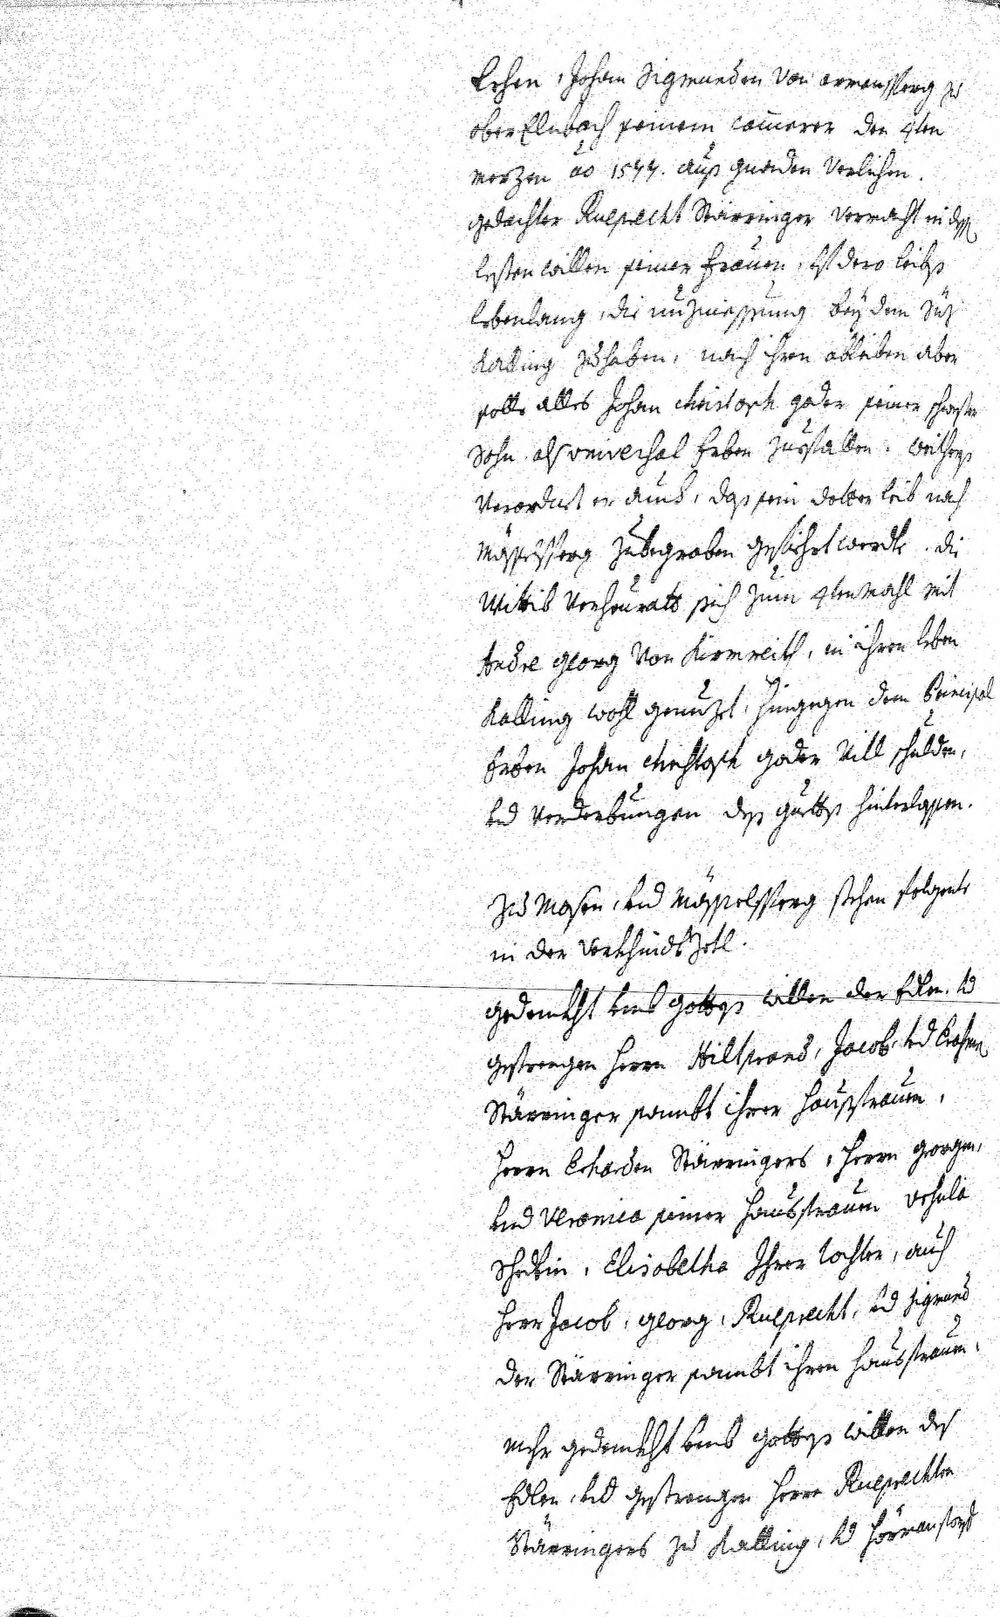 Lehen, Johan Sigmunden Von armansperg zu
ober Elnbach seinem camerer den 4ten
merzen ao 1577. auß gnaden Verlihen.
gedachter Rueprecht Stärringer Vermacht in deß
lesten willen seiner Frauen, ist dero leibß
lebenlang, die nuzniessung bey dem Siz
Kalling zuhaben, nach ihren ableiben aber
solle alles Johan Christoph goder seiner schwester
Sohn als vniversal Erben zuefallen.
Verordnet er auch, daß sein dotter leib nach
Mässelsperg zubegraben gefiehrt werdte. die
Wittib Verheurath sich zum 4ten mahl mit
Andre georg Von Kirmreith, in ihren leben
Kalling wohl genuzet, hingegen dem Principal
Erben Johan Christoph goder Vill schulden,
und Verderbungen deß guettß hinterlassen.
Zu Mosen, und Mässelsperg stehen folgente
in der Verkhindt Zetl.
gedenkht umb gotteß willen der Edlen. und
gestrengen herrn Hiltprand, Jacob, und
Stärringer sambt ihrer haußfrauen,
herrn Erharden Stärringers, herrn georgen,
und Veronica seiner haußfrauen Vrsula
Elisabetha Ihrer tochter, auch
herr Jacob, georg, Rueprecht, und Sigmund
der Stärringer sambt ihren haußfrauen,
mehr gedenkht umb gotteß willen deß
Edlen, und gestrengen herrn Rueprechten
Stärringers zu Kalling, und